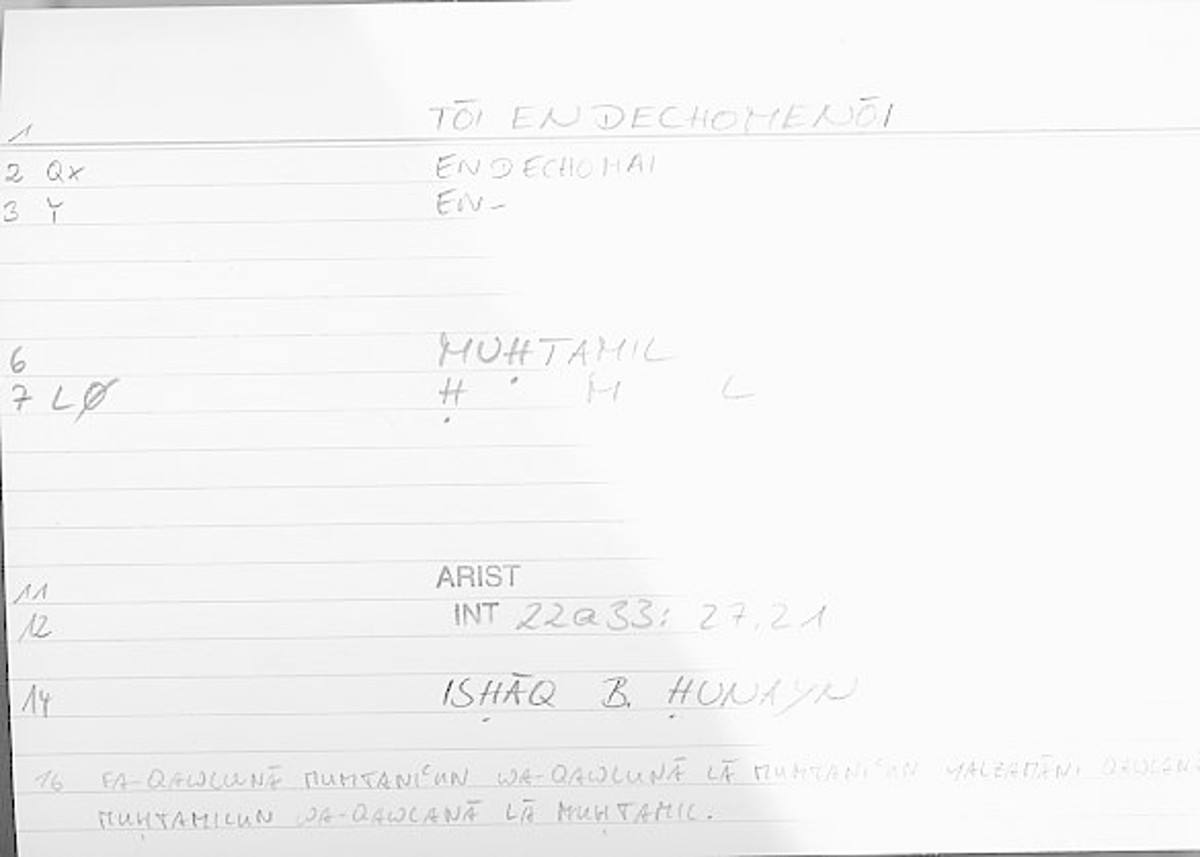 1 TŌI ENDECHOMENŌI
2 Qx ENDECHOMAI
3 Y EN-
6 MUḤTAMIL
7 LØ Ḥ M L
11 ARIST
12 INT 22a33: 27,21
14 ISḤĀQ B. ḤUNAYN
16 FA-QAWLUNĀ MUMTANIʿUN WA-QAWLUNĀ LĀ MUMTANIʿUN YALZAMĀNI QAWLANĀ
MUḤTAMILUN WA-QAWLANĀ LĀ MUḤTAMIL.